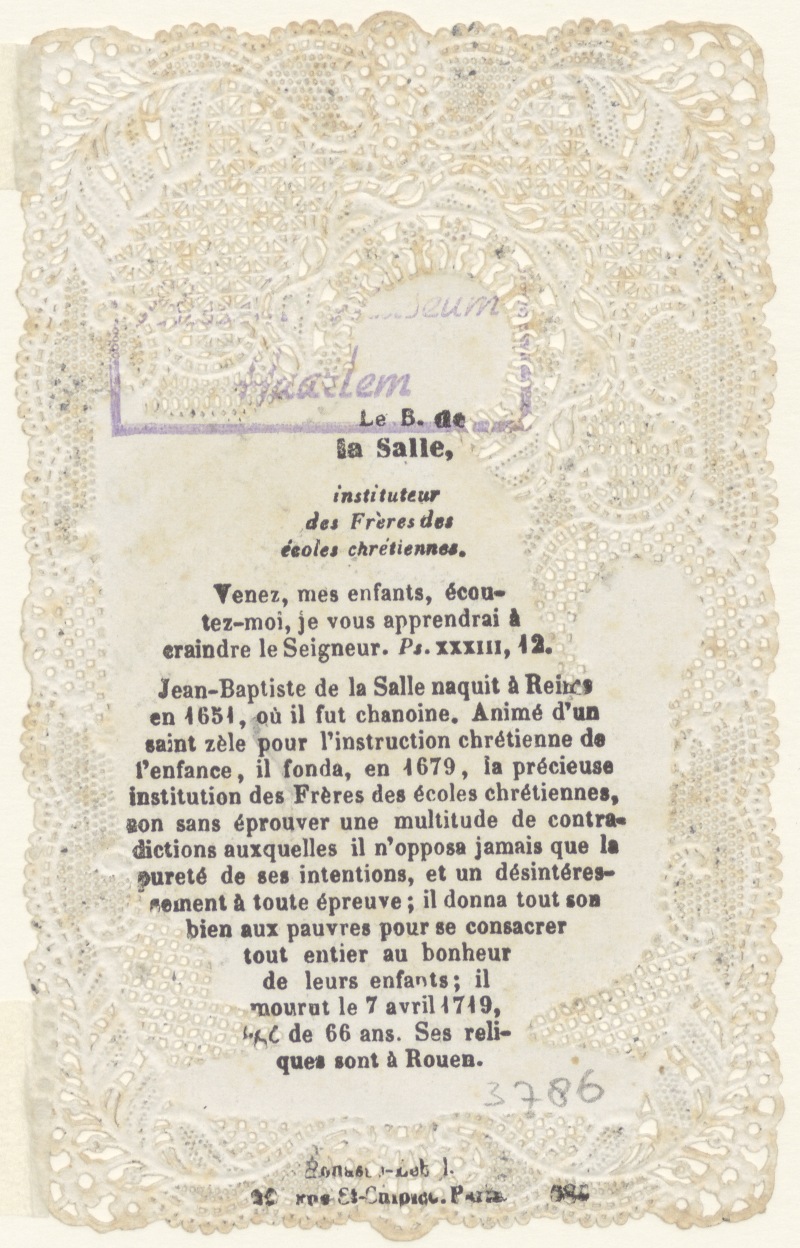 Haarlem
Le B. de
la Salle,
instituteur
des Frères des
écoles chrétiennes.
Venez, mes enfants, écou-
tez-moi, je vous apprendrai à
craindre le Seigneur. Ps. XXXIII, 12.
Jean-Baptiste de la Salle naquit à Reims
en 1651, où il fut chanoine. Animé d'un
saint zèle pour l'instruction chrétienne de
l'enfance, il fonda, en 1679, la précieuse
institution des Frères des écoles chrétiennes,
non sans éprouver une multitude de contra-
dictions auxquelles il n'opposa jamais que la
pureté de ses intentions, et un désintéres-
sement à toute épreuve; il donna tout son
bien aux pauvres pour se consacrer
tout entier au bonheur
de leurs enfants; il
mourut le 7 avril 1719,
de 66 ans. Ses reli-
ques sont à Rouen.
3786
rue St-Sulpice. Paris